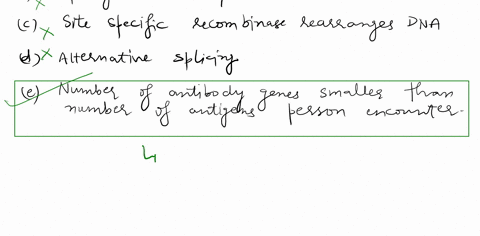 (c) Site specific recombinase rearranges DNA
(d) Alternative splicing
(e) Number of antibody genes smaller than
number of antigens person encounter.